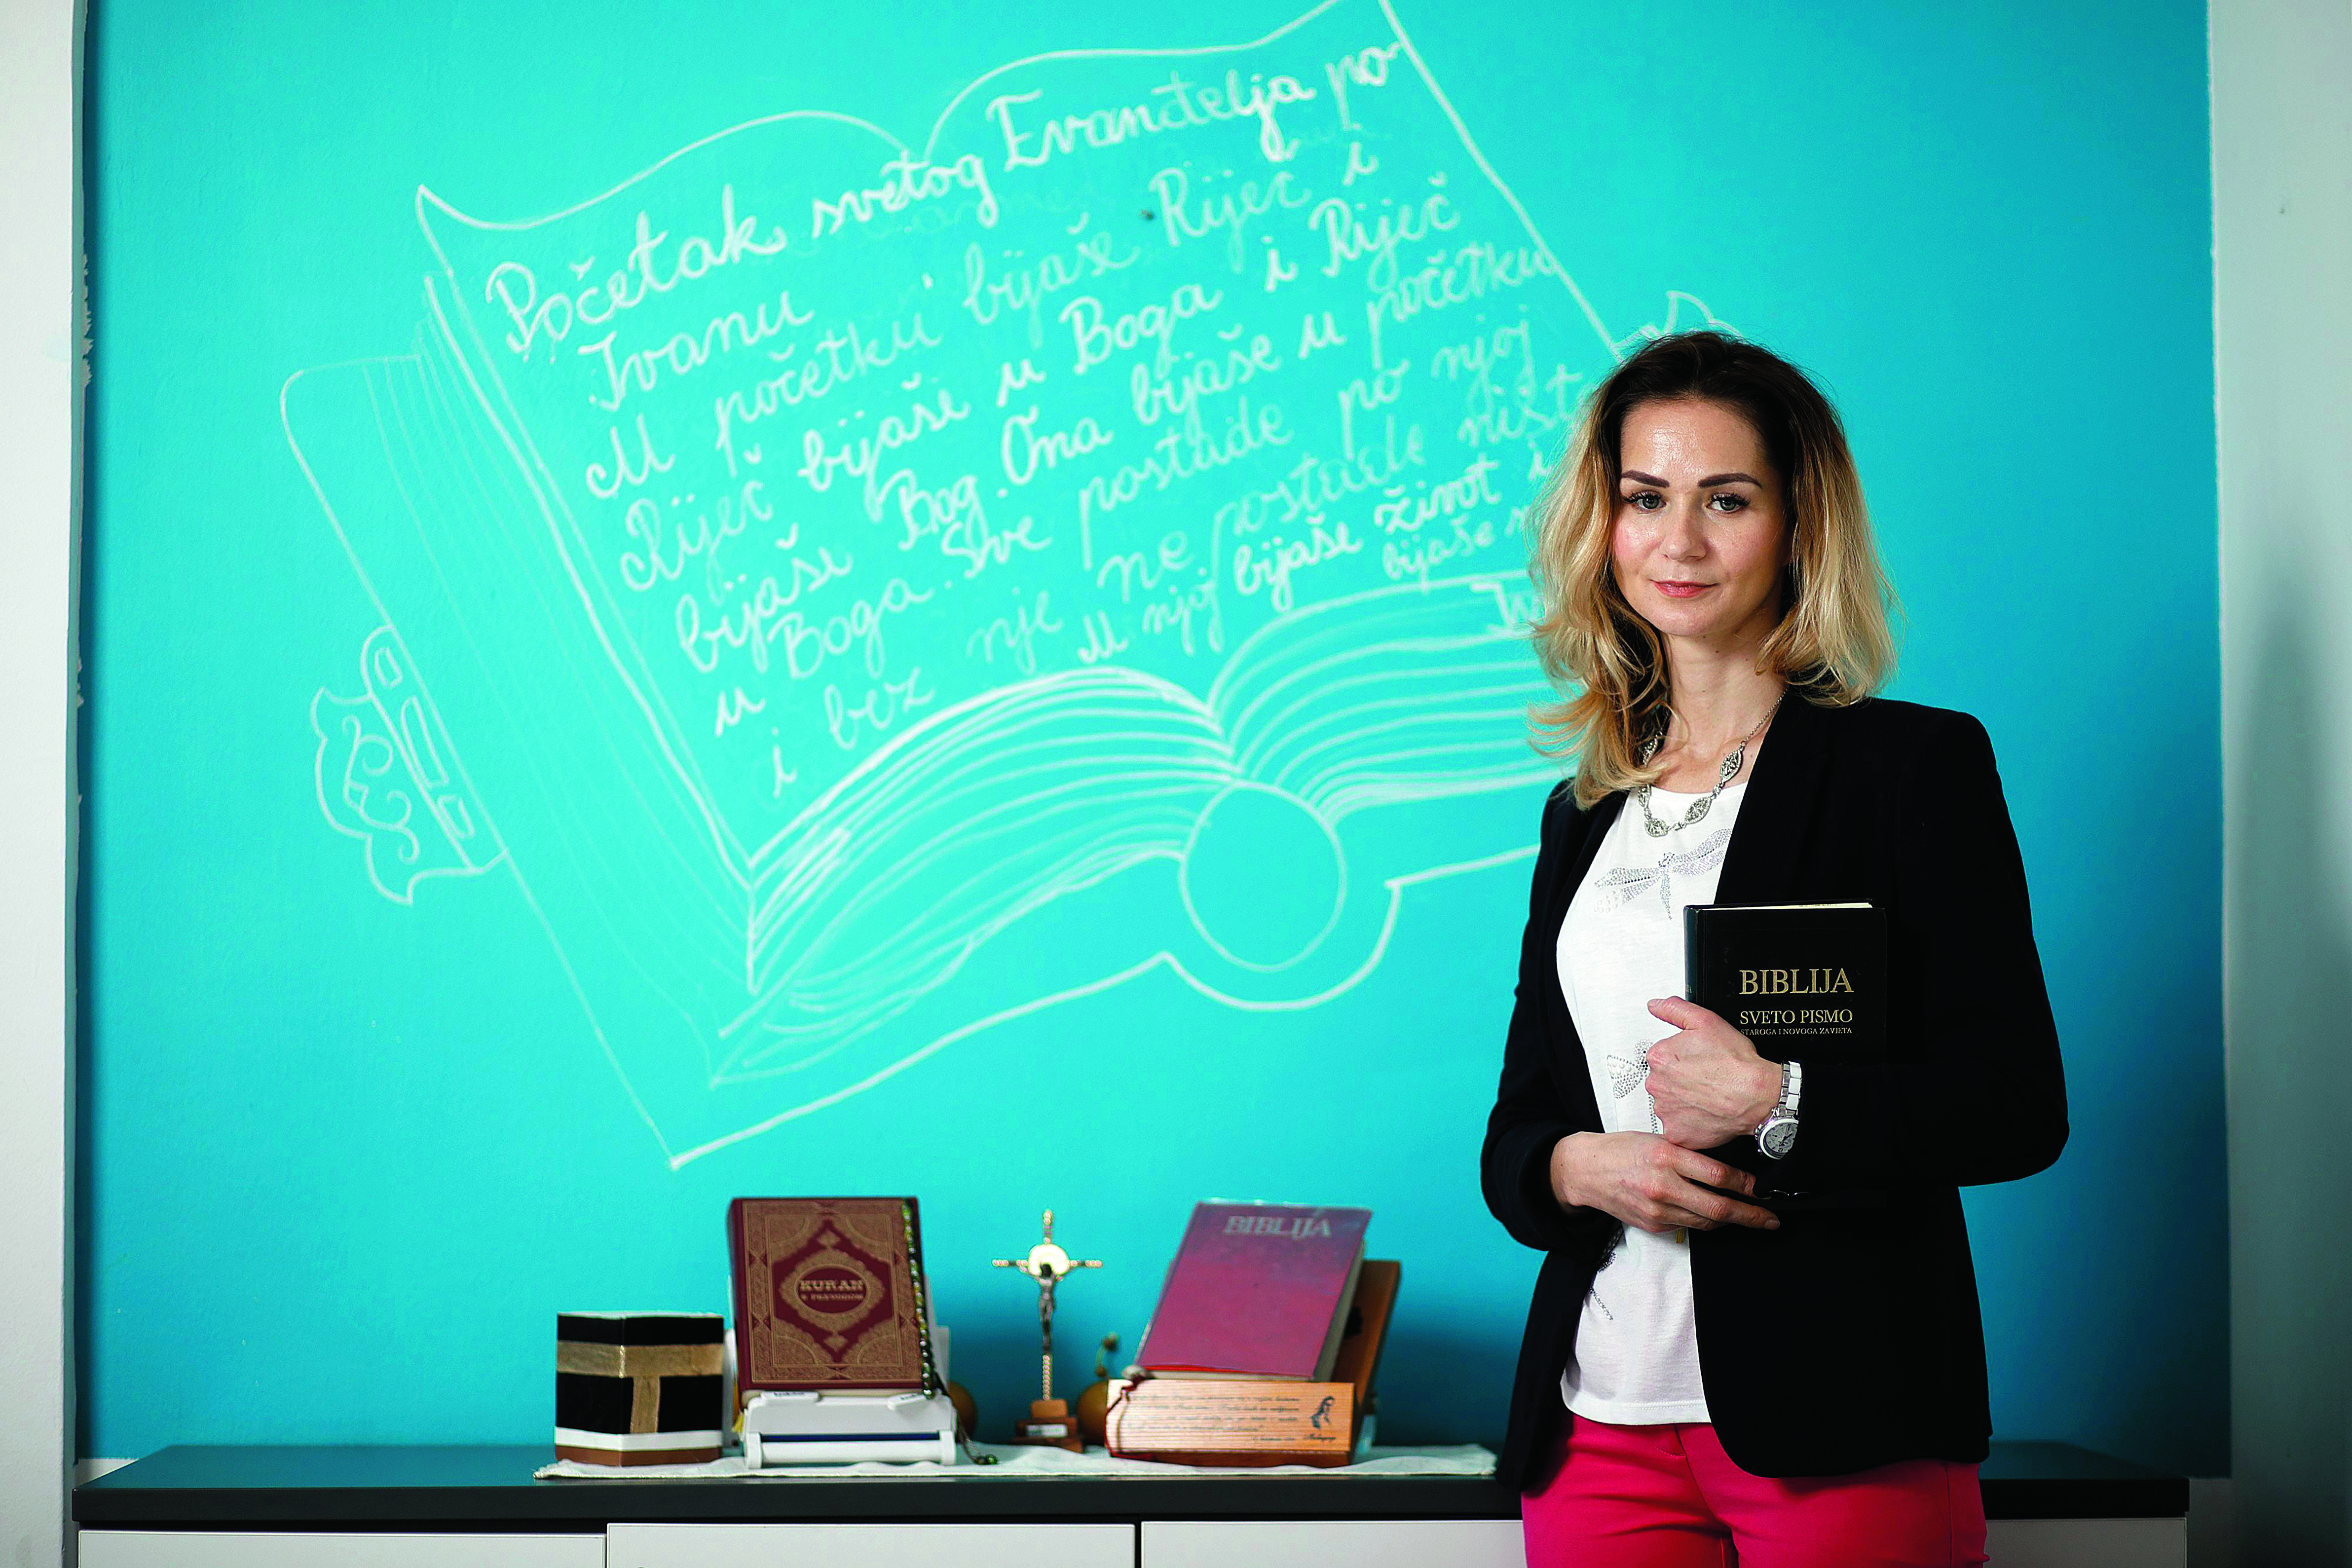 Početak svetog Evanđelja po
Ivanu
U početku bijaše Riječ i
Riječ bijaše u Boga i Riječ
bijaše Bog. Ona bijaše u početku
u Boga. Sve postade po njoj
i bez nje ne postade ništ
U njoj bijaše život i
bijaše
BIBLIJA
SVETO PISMO
STAROGA I NOVOGA ZAVJETA
KUR'AN
S PREVODOM
BIBLIJA